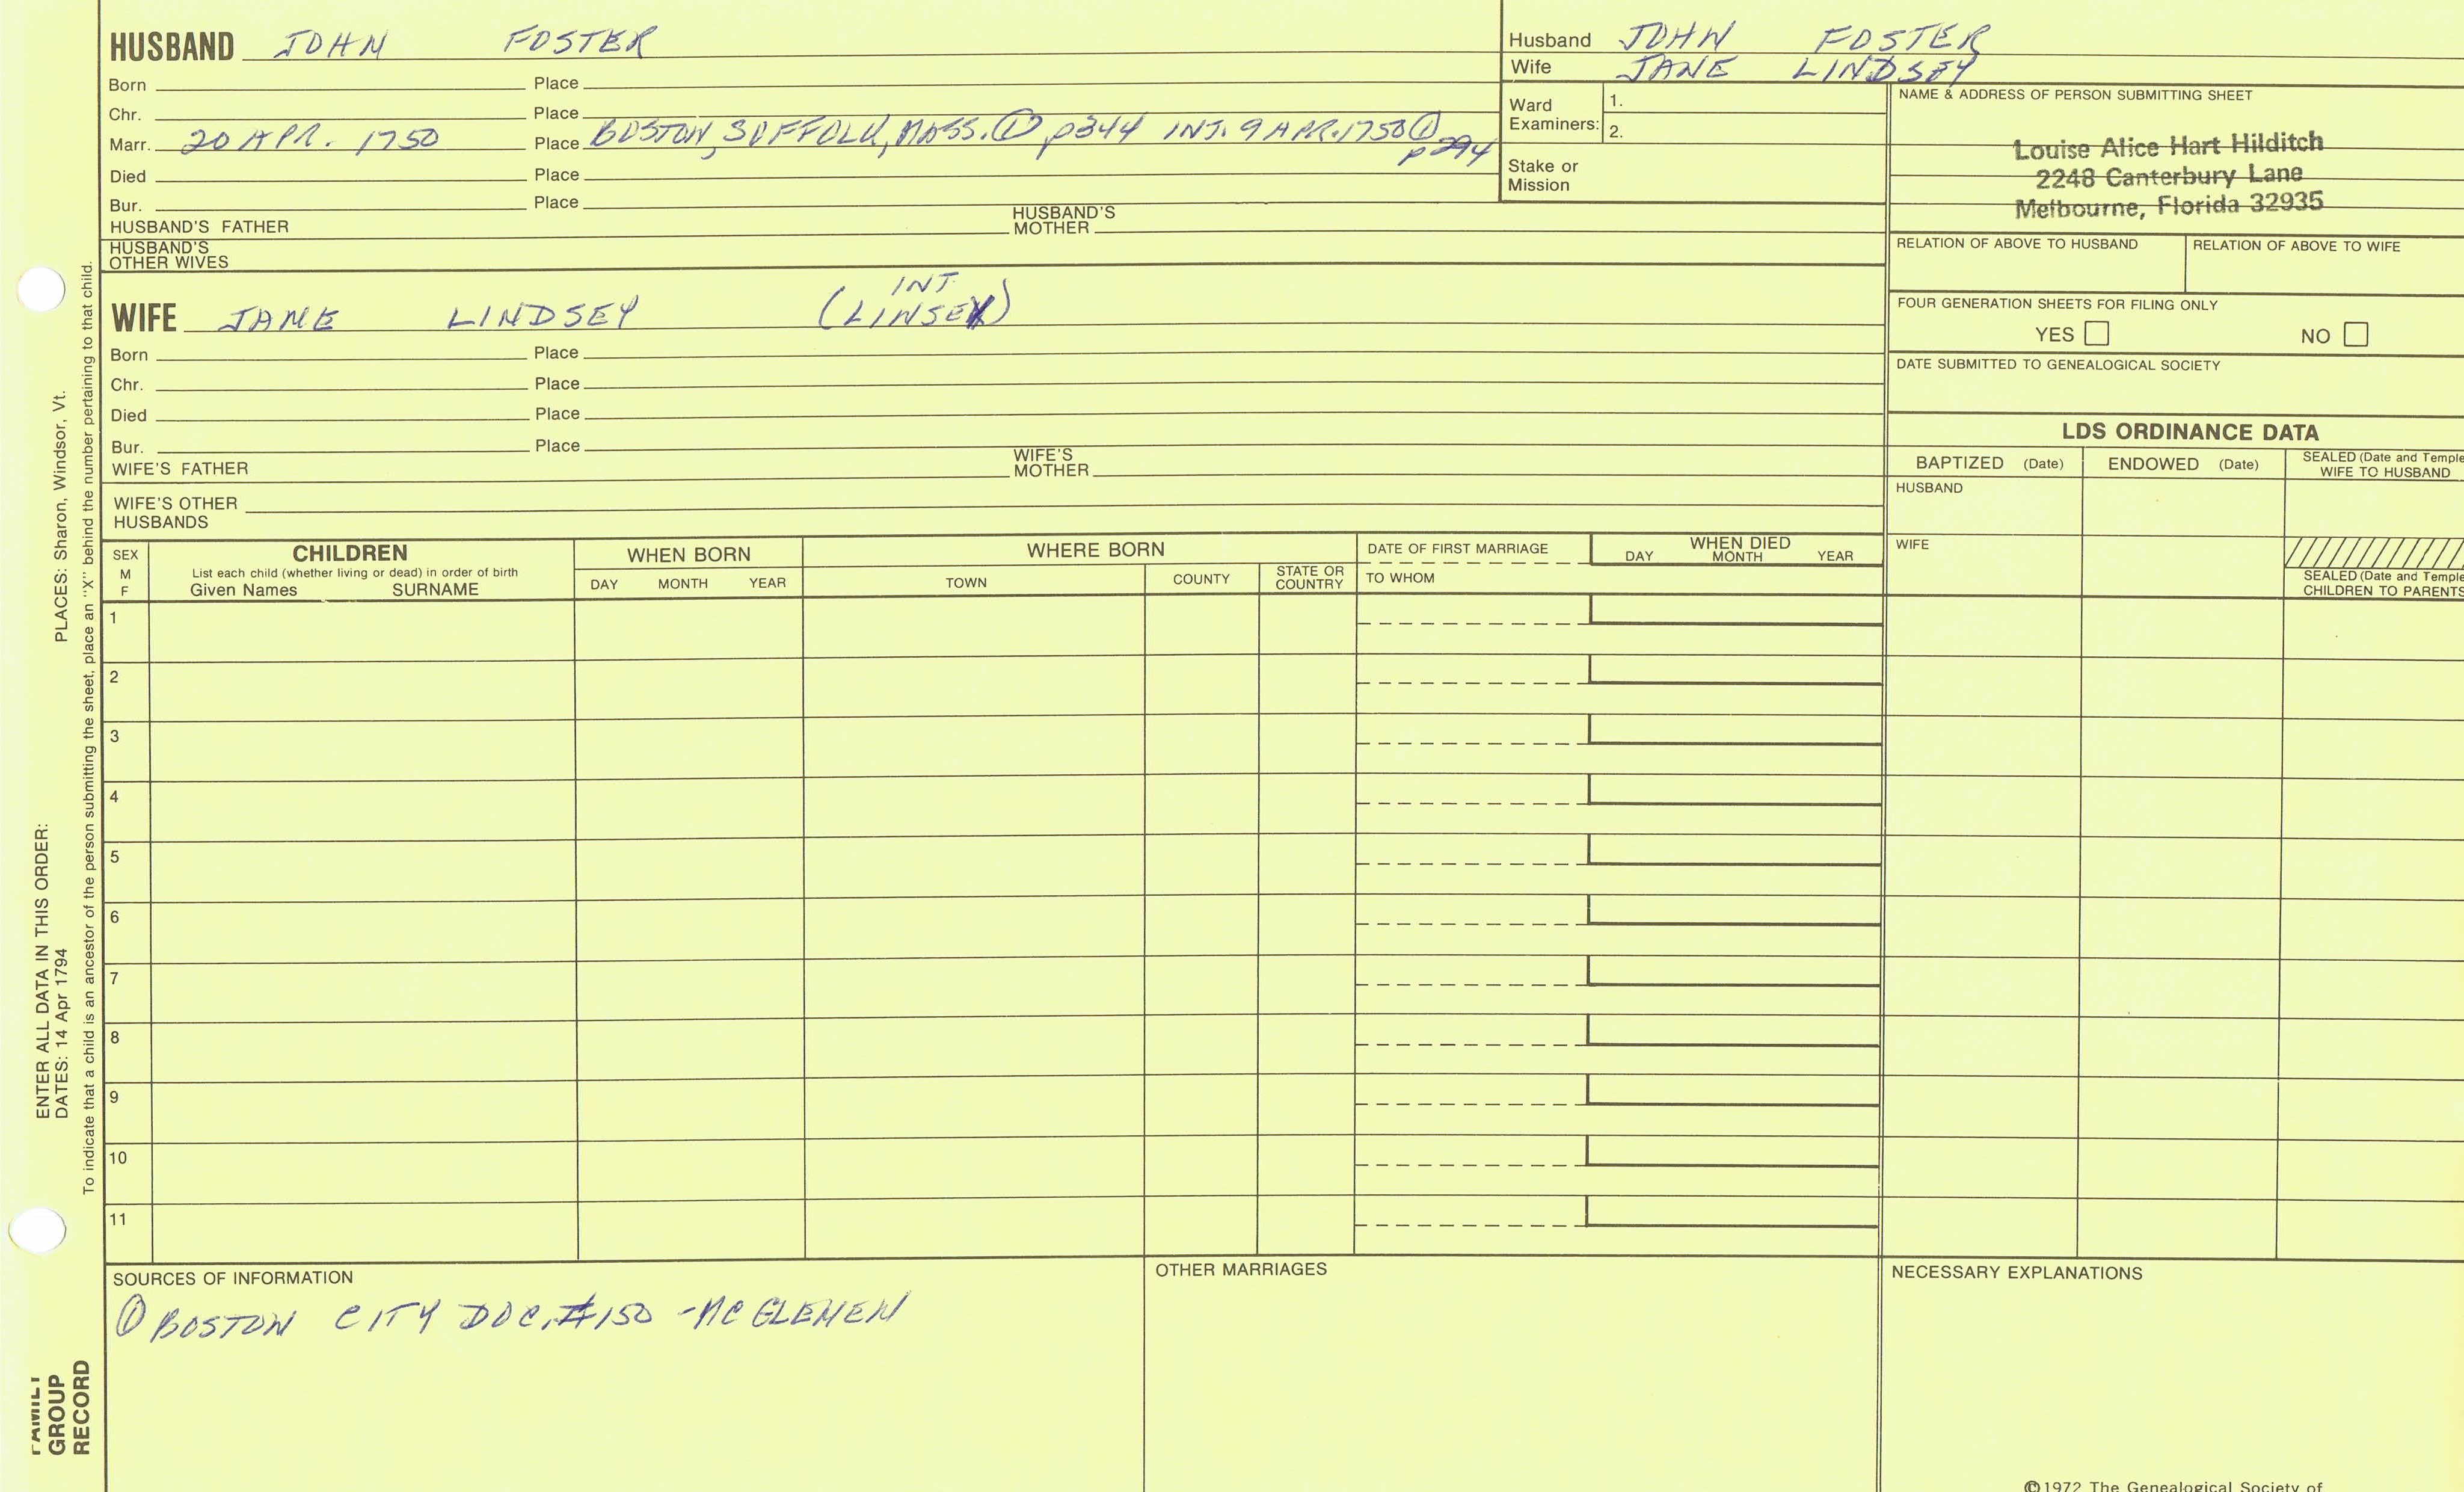 HUSBAND JOHN FOSTER
Born Place
Chr. Place
Marr. 20 APR. 1750 Place BOSTON, SUFFOLK, MASS. ① p344 INT. 9 APR. 1750 ①
p294
Died Place
Bur. Place
HUSBAND'S FATHER HUSBAND'S MOTHER
HUSBAND'S
OTHER WIVES
Husband JOHN FOSTER
Wife JANE LINDSEY
Ward
Examiners:
1.
2.
Stake or
Mission
NAME & ADDRESS OF PERSON SUBMITTING SHEET
Louise Alice Hart Hilditch
2248 Canterbury Lane
Melbourne, Florida 32935
RELATION OF ABOVE TO HUSBAND RELATION OF ABOVE TO WIFE
FOUR GENERATION SHEETS FOR FILING ONLY
YES NO
DATE SUBMITTED TO GENEALOGICAL SOCIETY
INT
WIFE JANE LINDSEY (LINSEY)
Born Place
Chr. Place
Died Place
Bur. Place
WIFE'S FATHER WIFE'S MOTHER
WIFE'S OTHER
HUSBANDS
LDS ORDINANCE DATA
BAPTIZED (Date) ENDOWED (Date) SEALED (Date and Temple
WIFE TO HUSBAND
HUSBAND
WIFE
SEALED (Date and Temple
CHILDREN TO PARENTS
SEX
M
F
CHILDREN
List each child (whether living or dead) in order of birth
Given Names SURNAME
WHEN BORN
DAY MONTH YEAR
WHERE BORN
TOWN COUNTY STATE OR
COUNTRY
DATE OF FIRST MARRIAGE
TO WHOM
WHEN DIED
DAY MONTH YEAR
1
2
3
4
5
6
7
8
9
10
11
SOURCES OF INFORMATION
① BOSTON CITY DOC. #150 -
OTHER MARRIAGES
NECESSARY EXPLANATIONS
©1972 The Genealogical Society of
ENTER ALL DATA IN THIS ORDER:
DATES: 14 Apr 1794 PLACES: Sharon, Windsor, Vt.
To indicate that a child is an ancestor of the person submitting the sheet, place an "X" behind the number pertaining to that child.
FAMILY
GROUP
RECORD